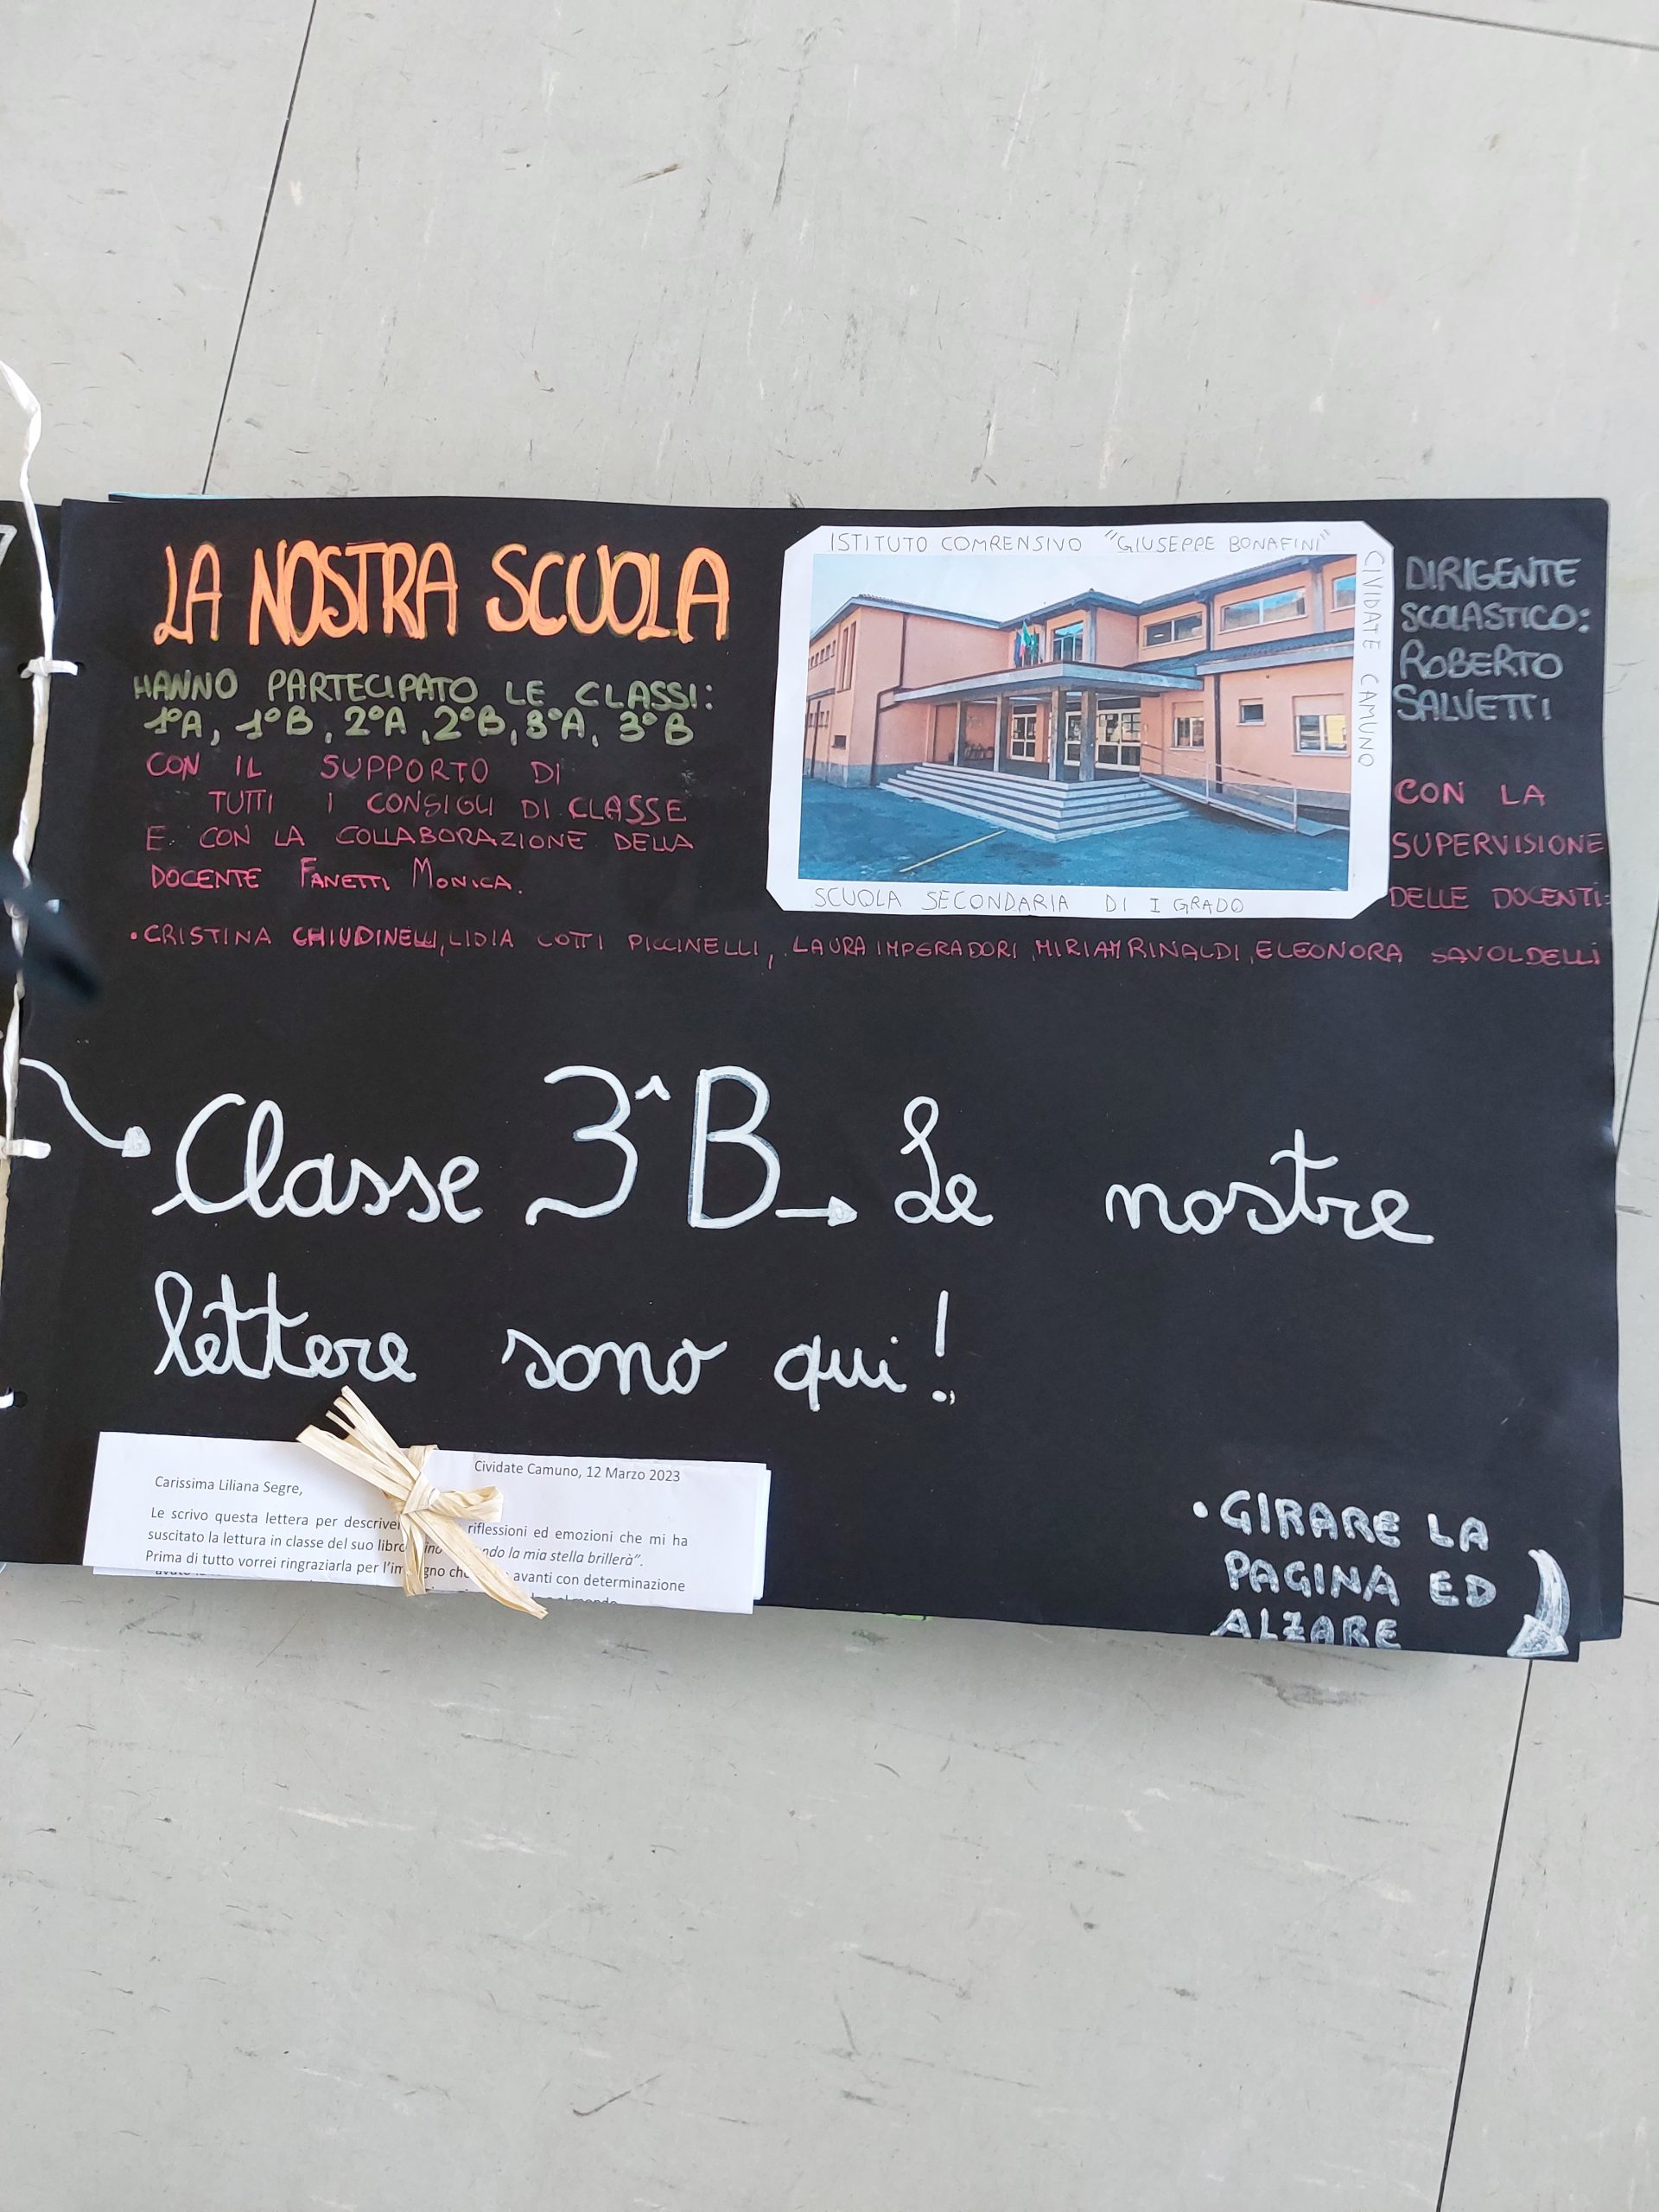 LA NOSTRA SCUOLA
HANNO PARTECIPATO LE CLASSI:
1°A, 1°B, 2°A, 2°B, 3°A, 3°B
CON IL SUPPORTO DI
TUTTI I CONSIGLI DI CLASSE
E CON LA COLLABORAZIONE DELLA
DOCENTE FANETTI MONICA.
ISTITUTO COMRENSIVO "GIUSEPPE BONAFINI"
CIVIDATE CAMUNO
SCUOLA SECONDARIA DI I GRADO
DIRIGENTE
SCOLASTICO:
ROBERTO
SALVETTI
CON LA
SUPERVISIONE
DELLE DOCENTI:
•CRISTINA CHIUDINELLI, LIDIA COTTI PICCINELLI, LAURA IMPERADORI, MIRIAM RINALDI, ELEONORA SAVOLDELLI
Classe 3^B → Le nostre
lettere sono qui!
Cividate Camuno, 12 Marzo 2023
Carissima Liliana Segre,
Le scrivo questa lettera per riflessioni ed emozioni che mi ha
suscitato la lettura in classe del suo libro la mia stella brillerà".
Prima di tutto vorrei ringraziarla per avanti con determinazione
• GIRARE LA
PAGINA ED
ALZARE